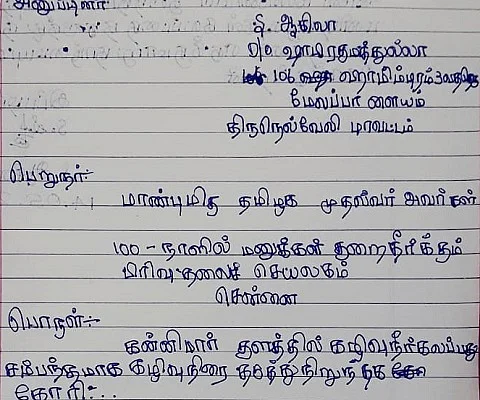 அனுப்புனர்
ந. ஆகிலா
D/o ஷாமி ரகுமத்துல்லா
106
மேலப்பாளையம்
திருநெல்வேலி மாவட்டம்
பெறுநர்:-
மாண்புமிகு தமிழக முதல்வர் அவர்கள்
100 - நாளில் மனுக்கள் குறைதீர்க்கும்
பிரிவு-தலைமைச் செயலகம்
சென்னை
பொருள்:-
கன்னிமார் குளத்தில் கழிவுநீர்கலப்பது
சம்பந்தமாக கழிவுநீரை தடுத்துநிறுத்த
கோரி:..